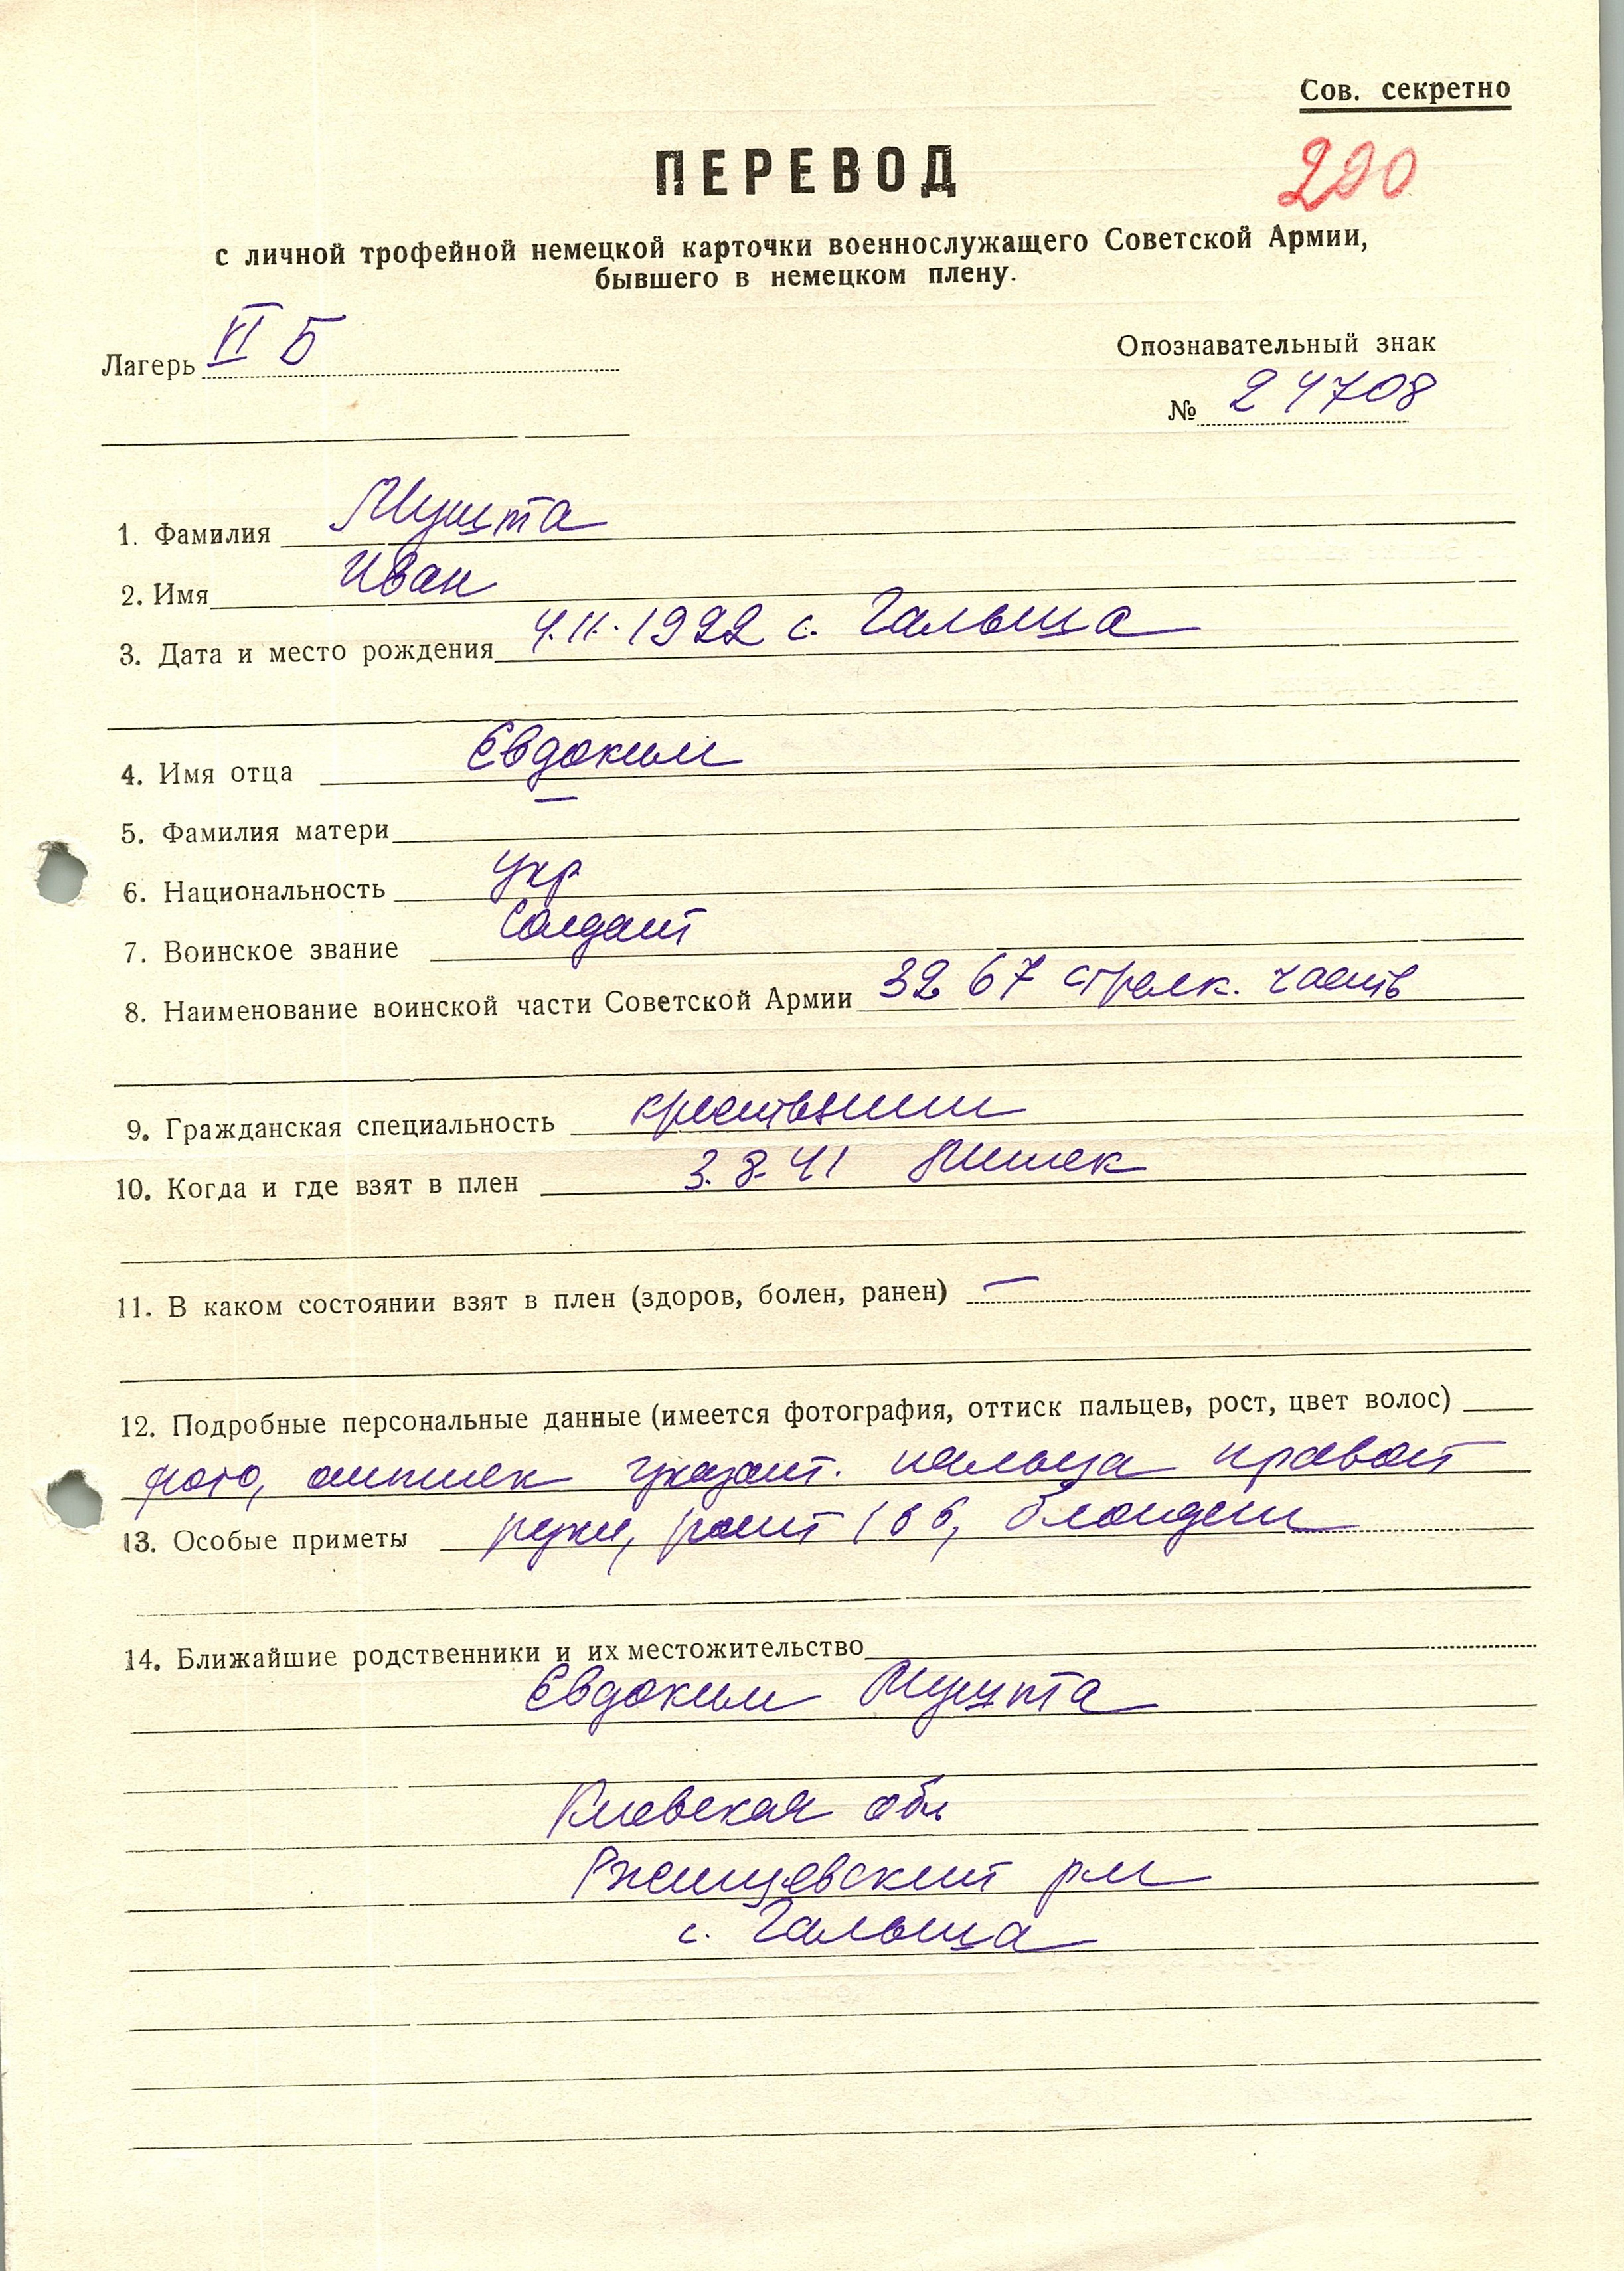 Сов. секретно
ПЕРЕВОД
220
с личной трофейной немецкой карточки военнослужащего Советской Армии,
бывшего в немецком плену.
Лагерь VI Б
Опознавательный знак
№ 24708
1. Фамилия Мушта
2. Имя Иван
3. Дата и место рождения 4.11.1922 с.
4. Имя отца Евдоким
5. Фамилия матери —
6. Национальность укр
7. Воинское звание Солдат
8. Наименование воинской части Советской Армии 3267 стрелк. часть
9. Гражданская специальность крестьянин
10. Когда и где взят в плен 3.8.41 Минск
11. В каком состоянии взят в плен (здоров, болен, ранен) —
12. Подробные персональные данные (имеется фотография, оттиск пальцев, рост, цвет волос)
фото, оттиск указат. пальца правой
13. Особые приметы руки, рост 166, блондин
14. Ближайшие родственники и их местожительство
Евдоким Мушта
Киевская обл
Ржищевский рн
с.